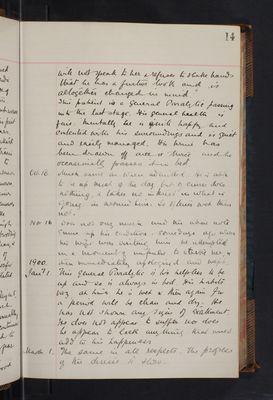 14
will not speak to her & refuses to shake hands
that he has a furtive look and is
altogether changed in mind.
This patient is a General Paralytic passing
into the last stage. His general health is
fair. Mentally he is quite happy and
contented with his surroundings and is quiet
and easily managed. His urine has
been drawn off once or twice and he
occasionally passes in bed
Oct. 16. Much same as when admitted. He is able
to be up most of the day but he does
nothing & takes no interest in what is
going on around him. So is
not.
Nov 16 Does not vary much and the above note
sums up his condition. Some days ago when
his wife was visiting him he attempted
in a momentary impulse to strike her, &
then immediately apologised and wept.
1900
Jany 1. This General Paralytic is too helpless to be
up and so is always in bed. His habits
vary as he is wet & then again for
a period will be clean and dry. He
has not shown any signs of excitement.
He does not appear to suffer nor does
he appear to lack anything that would
add to his happiness.
March 1. The same in all respects. The progress
of his disease is slow.